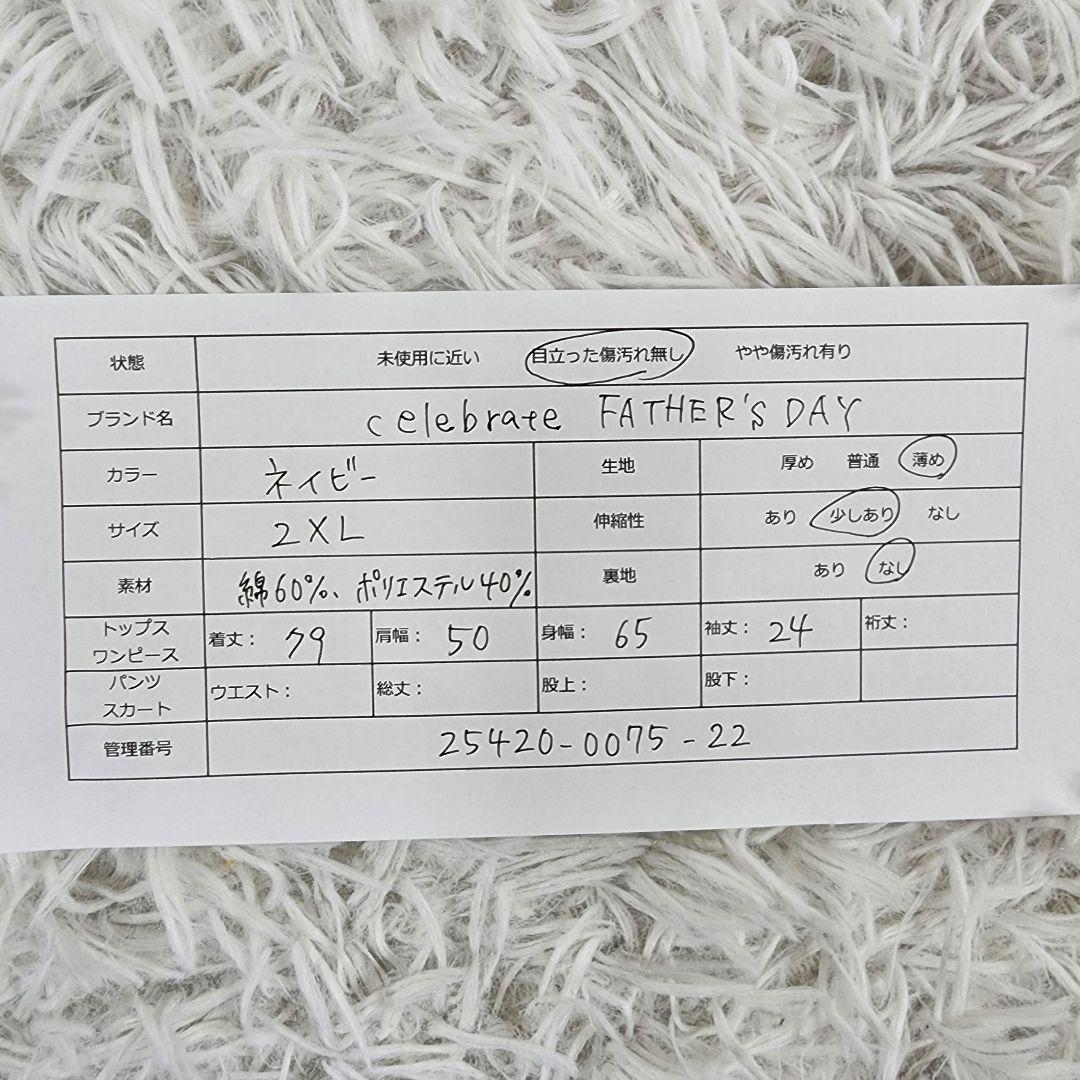 状態 未使用に近い 目立った傷汚れ無し やや傷汚れ有り
ブランド名 celebrate FATHER'S DAY
カラー ネイビー 生地 厚め 普通 薄め
サイズ 2XL 伸縮性 あり 少しあり なし
素材 綿60%、ポリエステル40% 裏地 あり なし
トップス
ワンピース 着丈: 79 肩幅: 50 身幅: 65 袖丈: 24 裄丈:
パンツ
スカート ウエスト: 総丈: 股上: 股下:
管理番号 25420-0075-22